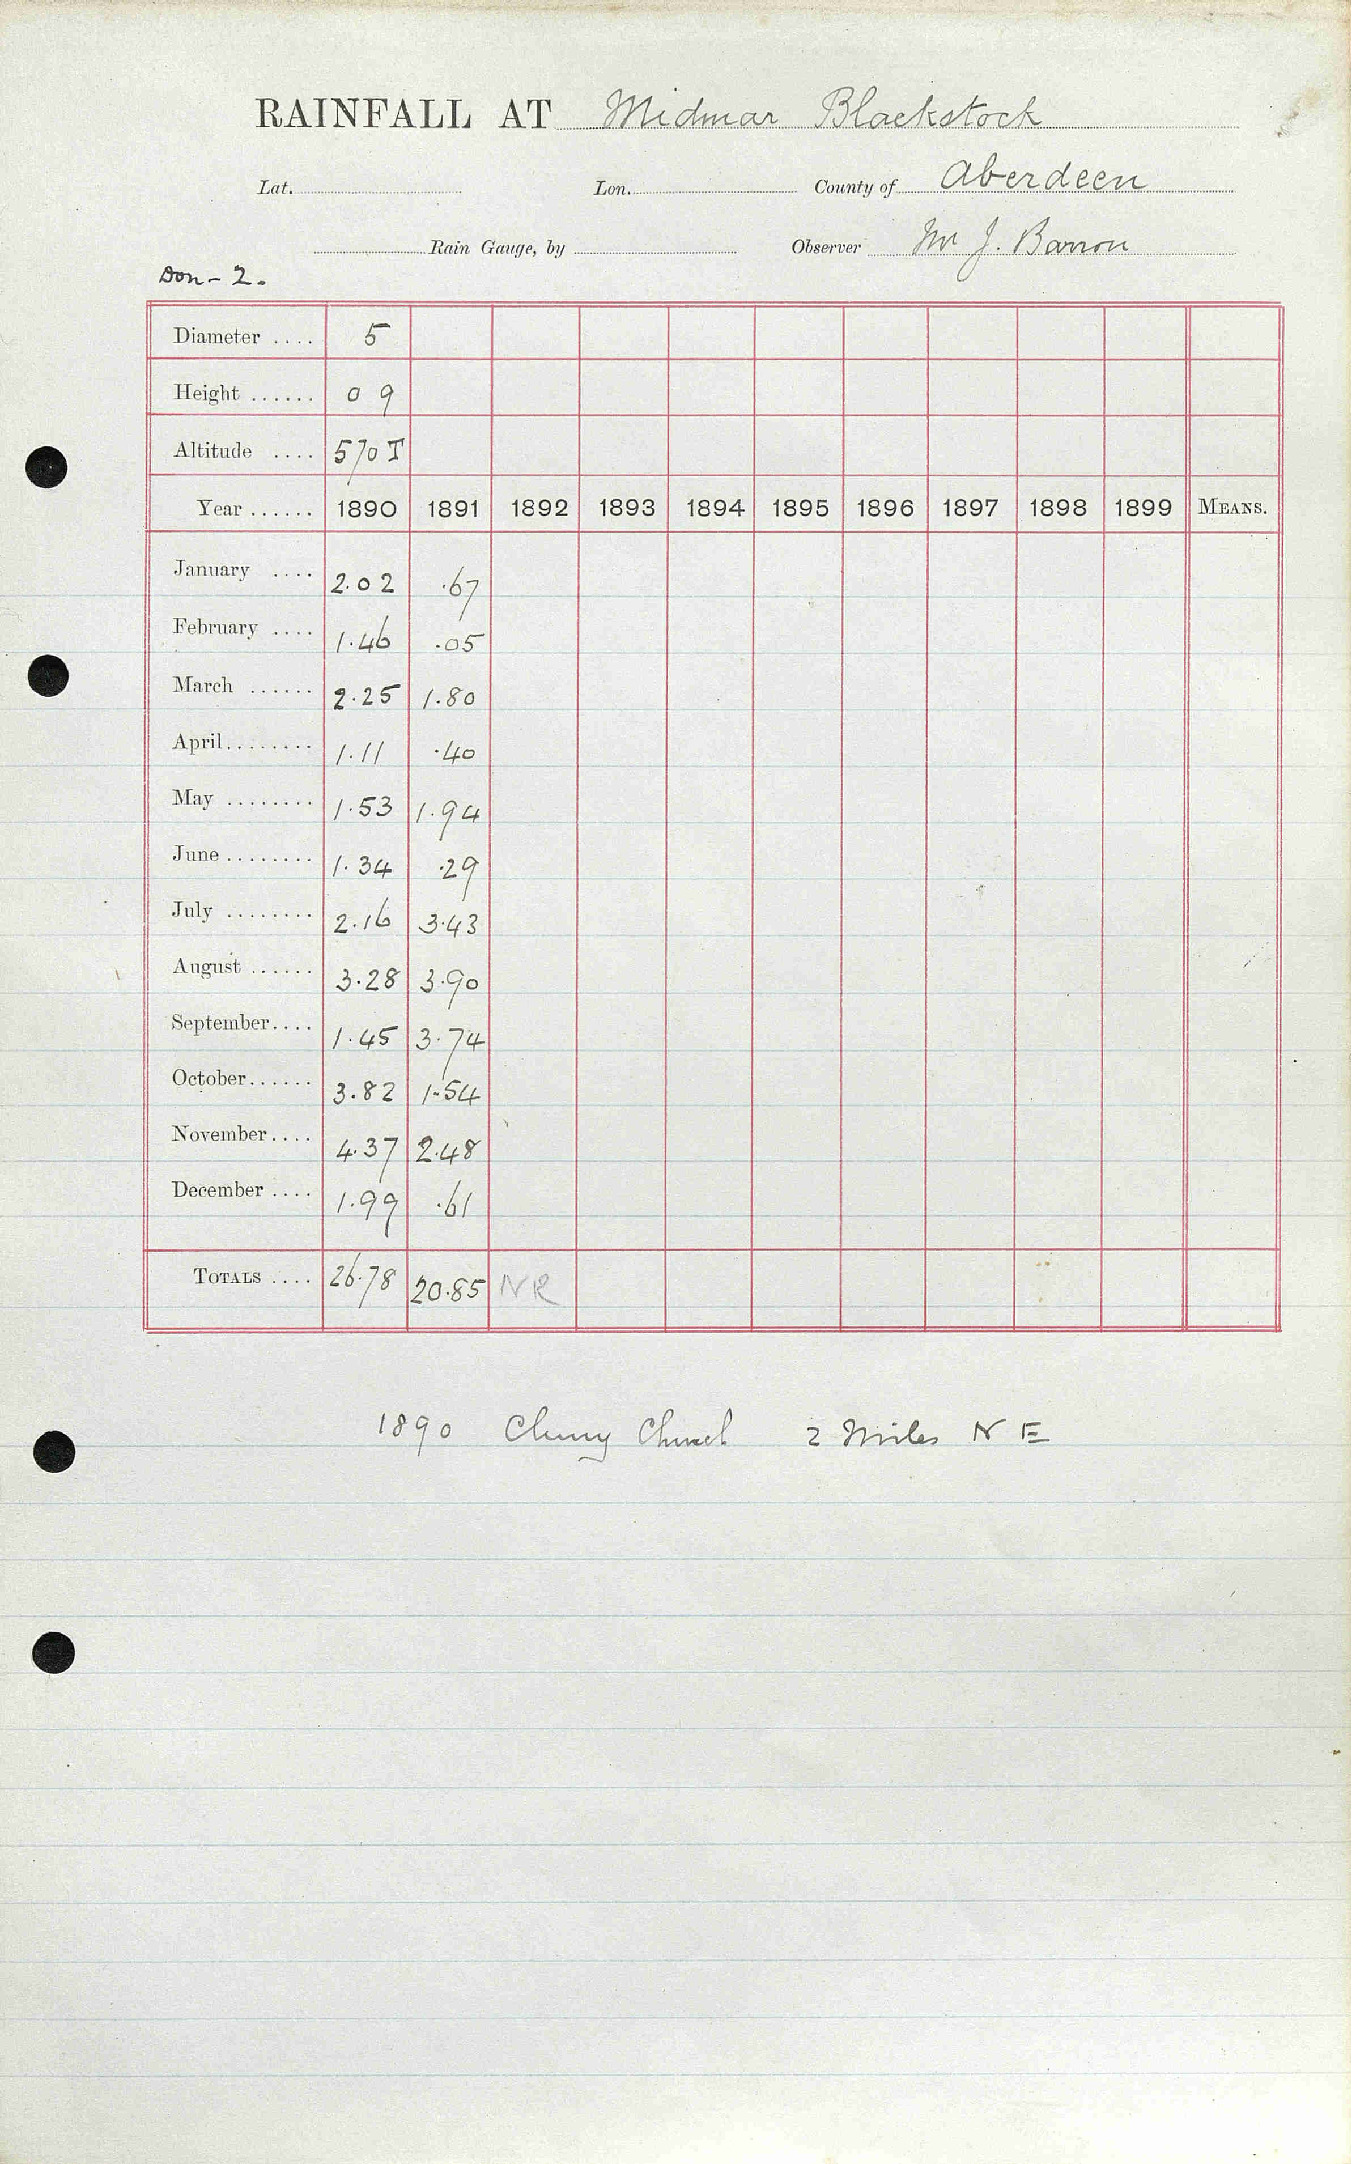 RAINFALL AT Midmar Blackstock
Lat. Lon. County of Aberdeen
Rain Gauge, by Observer Mr J. Barron
Don - 2.
Diameter .... 5
Height ...... 0 9
Altitude .... 570 T
Year ...... 1890 1891 1892 1893 1894 1895 1896 1897 1898 1899 MEANS.
January .... 2.02 .67
February .... 1.46 .05
March ...... 2.25 1.80
April........ 1.11 .40
May ........ 1.53 1.94
June ........ 1.34 .29
July ........ 2.16 3.43
August ...... 3.28 3.90
September.... 1.45 3.74
October...... 3.82 1.54
November.... 4.37 2.48
December .... 1.99 .61
TOTALS .... 26.78 20.85 NR
1890 Cluny Church 2 Miles N E